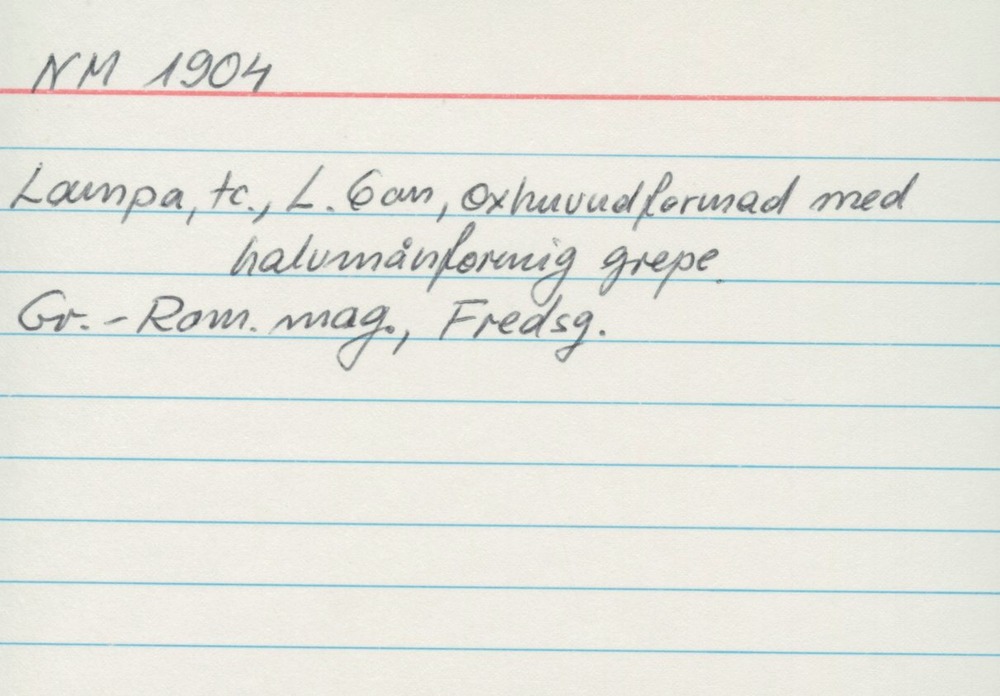 NM 1904
Lampa, tc., L. 6 cm, oxhuvudformad med
halvmånformig grepe.
Gr.-Rom. mag., Fredsg.